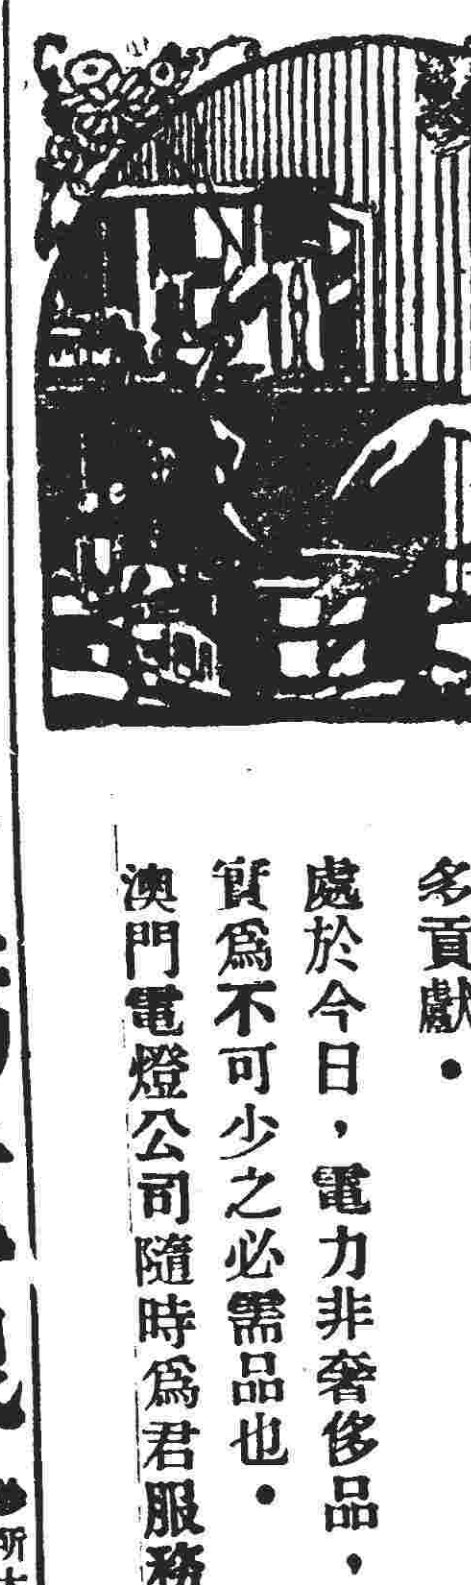 多貢獻．
處於今日，電力非奢侈品，
實爲不可少之必需品也．
澳門電燈公司隨時爲君服務